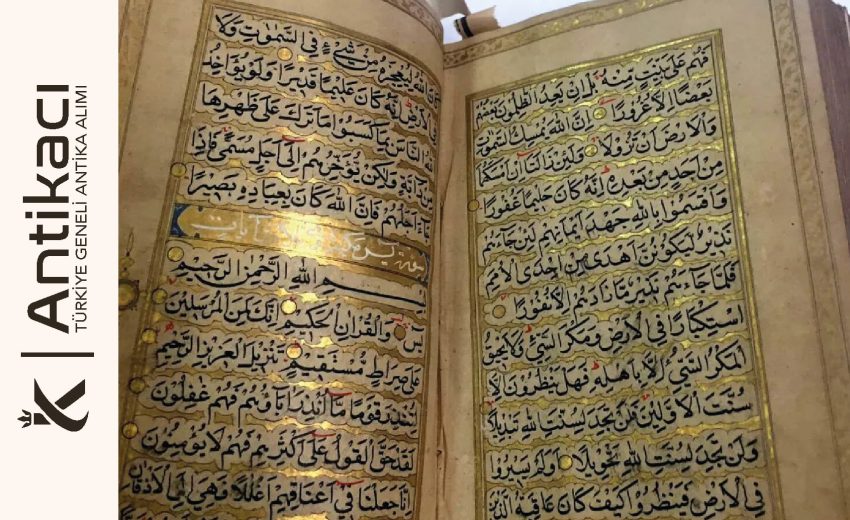 Antikacı
TÜRKİYE GENELİ ANTİKA ALIMI
فَهُمْ عَلٰى بَيِّنَتٍ مِنْهُ بَلْ اِنْ يَعِدُ الظَّالِمُونَ بَعْضُهُمْ
بَعْضًا اِلَّا غُرُورًا اِنَّ اللّٰهَ يُمْسِكُ السَّمٰوَاتِ
وَالْاَرْضَ اَنْ تَزُولَا وَلَئِنْ زَالَتَا اِنْ اَمْسَكَهُمَا
مِنْ اَحَدٍ مِنْ بَعْدِهِ اِنَّهُ كَانَ حَلِيمًا غَفُورًا
وَاَقْسَمُوا بِاللّٰهِ جَهْدَ اَيْمَانِهِمْ لَئِنْ جَاءَهُمْ
نَذِيرٌ لَيَكُونُنَّ اَهْدٰى مِنْ اِحْدَى الْاُمَمِ
فَلَمَّا جَاءَهُمْ نَذِيرٌ مَا زَادَهُمْ اِلَّا نُفُورًا
اسْتِكْبَارًا فِي الْاَرْضِ وَمَكْرَ السَّيِّئِ وَلَا يَحِيقُ
الْمَكْرُ السَّيِّئُ اِلَّا بِاَهْلِهِ فَهَلْ يَنْظُرُونَ اِلَّا
سُنَّتَ الْاَوَّلِينَ فَلَنْ تَجِدَ لِسُنَّتِ اللّٰهِ تَبْدِيلًا
وَلَنْ تَجِدَ لِسُنَّتِ اللّٰهِ تَحْوِيلًا اَوَلَمْ يَسِيرُوا
فِي الْاَرْضِ فَيَنْظُرُوا كَيْفَ كَانَ عَاقِبَةُ الَّذِينَ
كَانَ اللّٰهُ لِيُعْجِزَهُ مِنْ شَيْءٍ فِي السَّمٰوَاتِ وَلَا
فِي الْاَرْضِ اِنَّهُ كَانَ عَلِيمًا قَدِيرًا وَلَوْ يُؤَاخِذُ
اللّٰهُ النَّاسَ بِمَا كَسَبُوا مَا تَرَكَ عَلٰى ظَهْرِهَا
مِنْ دَابَّةٍ وَلٰكِنْ يُؤَخِّرُهُمْ اِلٰى اَجَلٍ مُسَمًّى فَاِذَا
جَاءَ اَجَلُهُمْ فَاِنَّ اللّٰهَ كَانَ بِعِبَادِهِ بَصِيرًا
سورة يس مكية آيات
بِسْمِ اللّٰهِ الرَّحْمٰنِ الرَّحِيمِ
يٰسٓ وَالْقُرْاٰنِ الْحَكِيمِ اِنَّكَ لَمِنَ الْمُرْسَلِينَ
عَلٰى صِرَاطٍ مُسْتَقِيمٍ تَنْزِيلَ الْعَزِيزِ الرَّحِيمِ
لِتُنْذِرَ قَوْمًا مَا اُنْذِرَ اٰبَاؤُهُمْ فَهُمْ غَافِلُونَ
لَقَدْ حَقَّ الْقَوْلُ عَلٰى اَكْثَرِهِمْ فَهُمْ لَا يُؤْمِنُونَ
اِنَّا جَعَلْنَا فِي اَعْنَاقِهِمْ اَغْلَالًا فَهِيَ اِلَى الْاَذْقَانِ